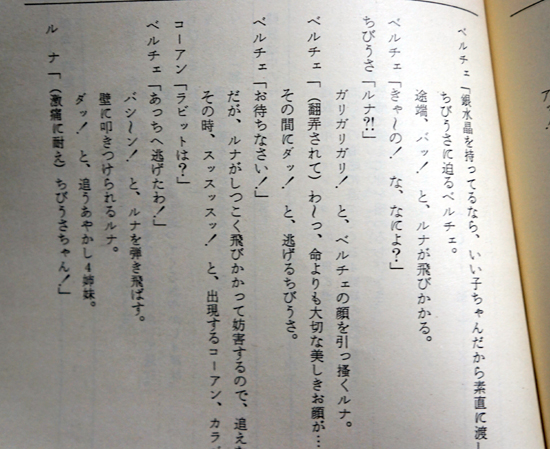 ベルチェ「銀水晶を持ってるなら、いい子ちゃんだから素直に渡
ちびうさに迫るベルチェ。
途端、バッ！　と、ルナが飛びかかる。
ベルチェ「きゃ〜の！　な、なによ？」
ちびうさ「ルナ?!」
ガリガリガリ！　と、ベルチェの顔を引っ掻くルナ。
ベルチェ「（翻弄されて）わ〜っ、命よりも大切な美しきお顔が…
その間にダッ！　と、逃げるちびうさ。
ベルチェ「お待ちなさい！」
だが、ルナがしつこく飛びかかって妨害するので、追え
その時、スッスッスッ！　と、出現するコーアン、カラ
コーアン「ラビットは？」
ベルチェ「あっちへ逃げたわ！」
バシ〜ン！　と、ルナを弾き飛ばす。
壁に叩きつけられるルナ。
ダッ！　と、追うあやかし4姉妹。
ル　ナ「（激痛に耐え）ちびうさちゃん！」